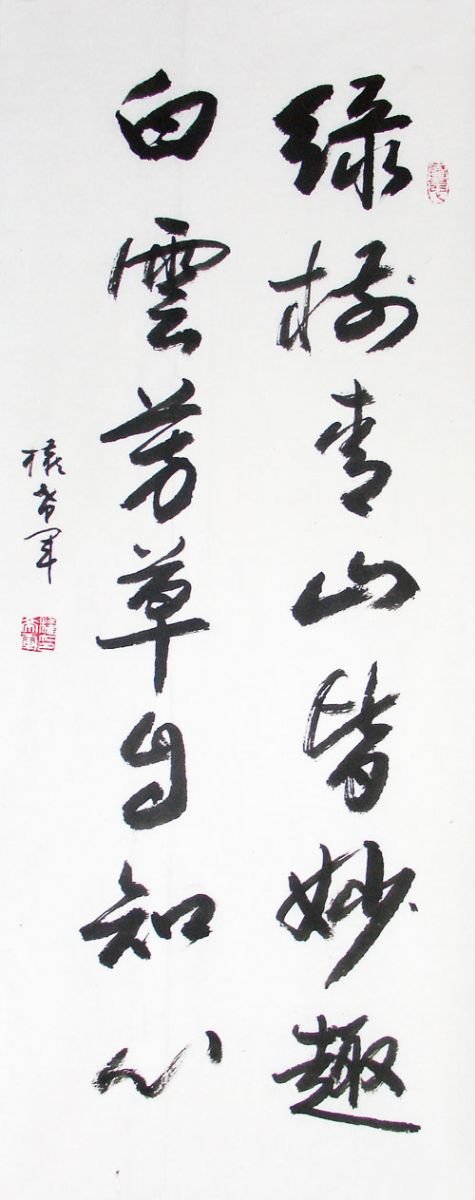 綠樹青山皆妙趣
白雲芳草自知心
權希軍